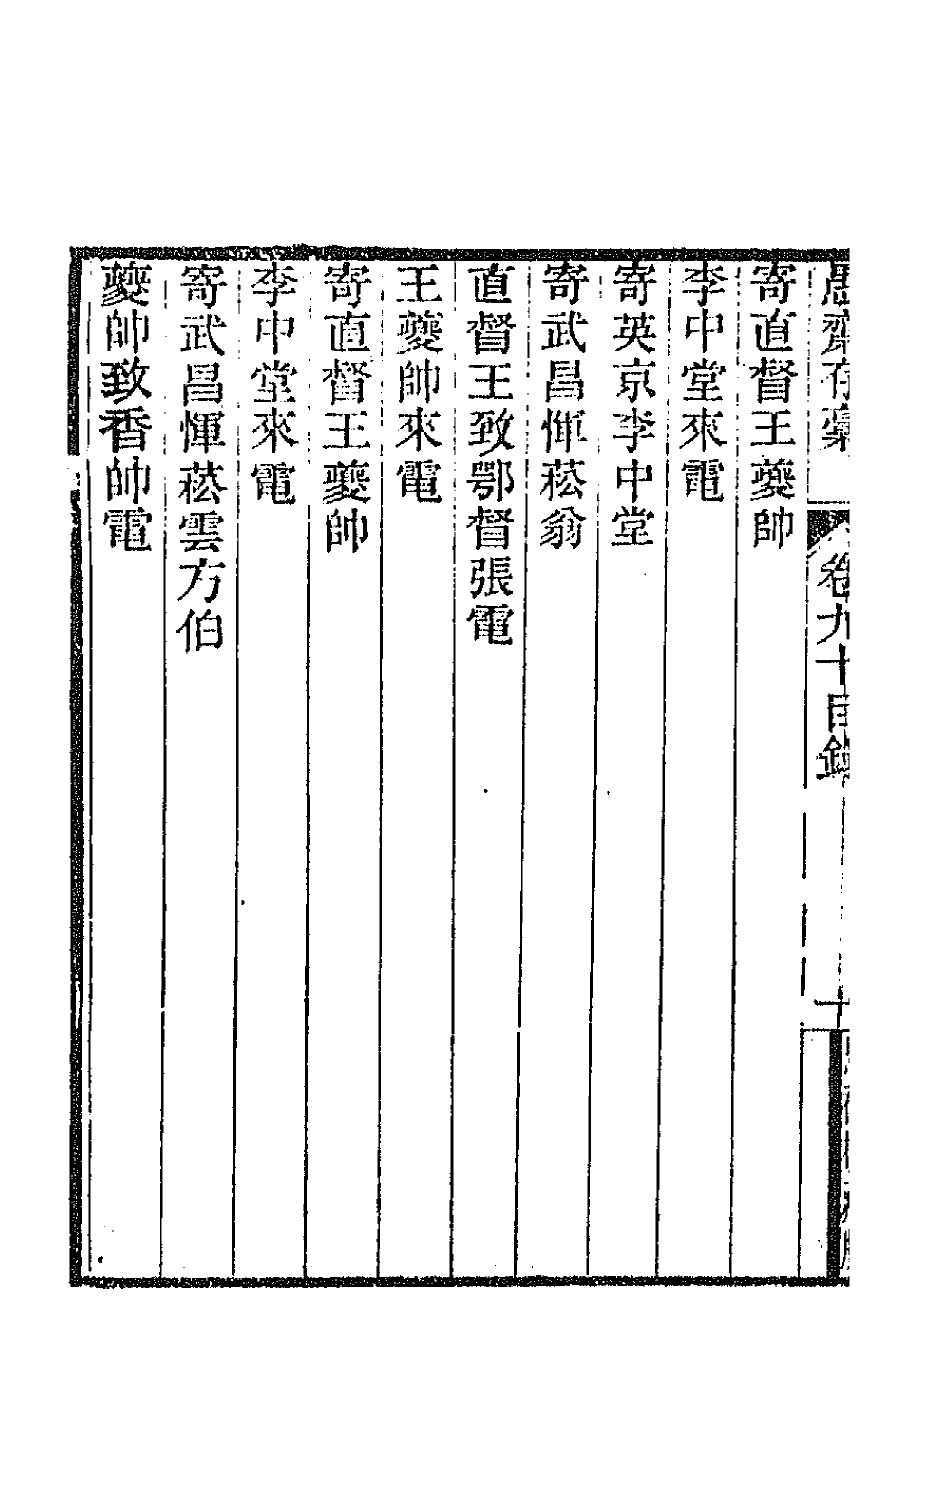 愚齋存稾 卷九十目錄 十
寄直督王夔帥
李中堂來電
寄英京李中堂
寄武昌惲菘翁
直督王致鄂督張電
王夔帥來電
寄直督王夔帥
李中堂來電
寄武昌惲菘雲方伯
夔帥致香帥電